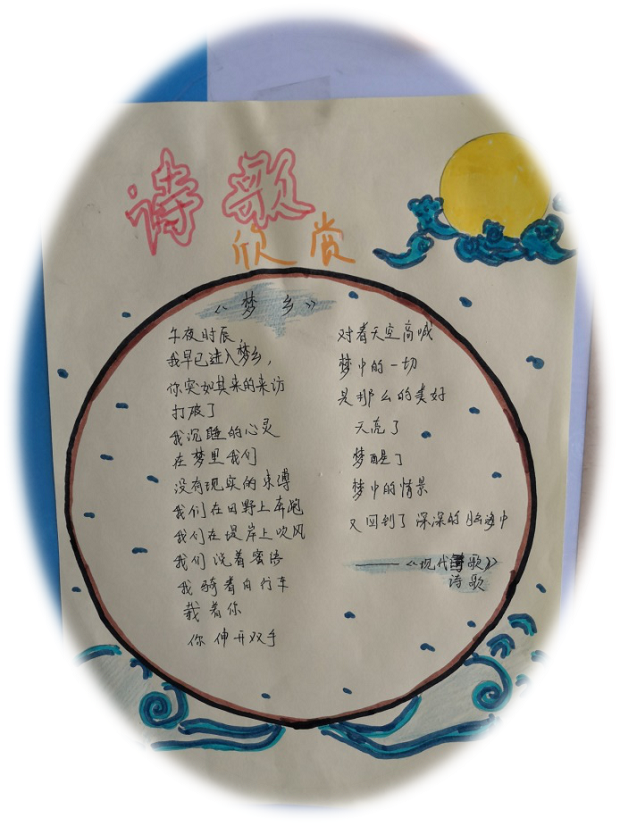 诗歌
欣赏
《梦乡》
午夜时辰
我早已进入梦乡，
你突如其来的来访
打破了
我沉睡的心灵
在梦里我们
没有现实的束缚
我们在田野上奔跑
我们在堤岸上吹风
我们说着蜜语
我骑着自行车
载着你
你伸开双手
对着天空高喊
梦中的一切
是那么的美好
天亮了
梦醒了
梦中的情景
又回到了深深的脑海中
——《现代歌》
诗歌